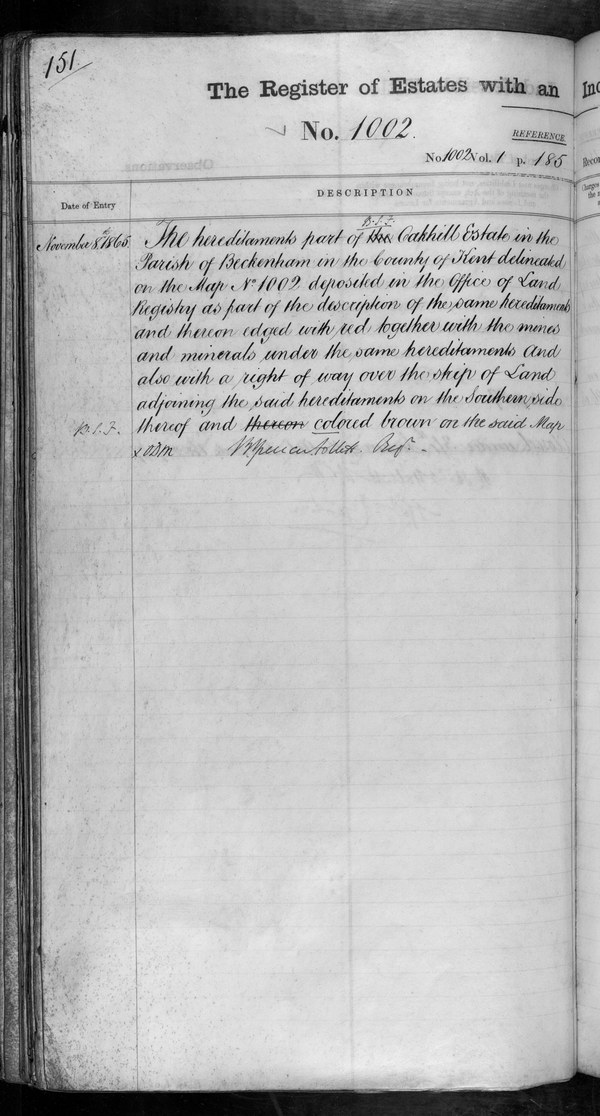 151
The Register of Estates with an
No. 1002.
REFERENCE
No. 1002 Vol. 1 p. 185
Observations
DESCRIPTION
Date of Entry
B.S.F.
November 8th 1865 The hereditaments part of the Oakhill Estate in the
Parish of Beckenham in the County of Kent delineated
on the Map No 1002 deposited in the Office of Land
Registry as part of the description of the same hereditaments
and thereon edged with red together with the mines
and minerals under the same hereditaments And
also with a right of way over the strip of Land
adjoining the said hereditaments on the Southern side
B.S.F. thereof and thereon colored brown on the said Map
Inc
Recor
Charges